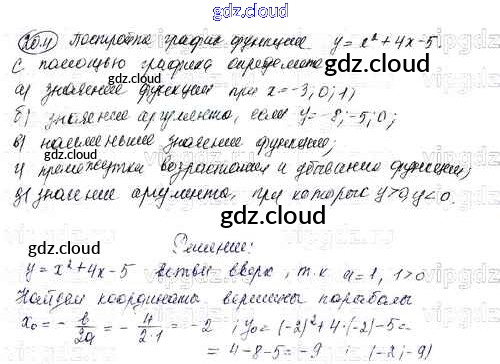 gdz.cloud
20.4 Постройте график функции y = x² + 4x - 5.
С помощью графика определите
gdz.cloud
а) значение функции при x = -3; 0; 1;
б) значение аргумента, если y = -8; -5; 0;
в) наименьшее значение функции;
г) промежутки возрастания и убывания функции;
gdz.cloud
д) значение аргумента, при которых y > 0, y < 0.
gdz.cloud
Решение:
y = x² + 4x - 5 ветви вверх, т.к a = 1, 1 > 0
Найдем координаты вершины параболы
x₀ = - b/2a = - 4/2·1 = -2; y₀ = (-2)² + 4·(-2) - 5 =
= 4 - 8 - 5 = -9; (-2; -9)
gdz.cloud